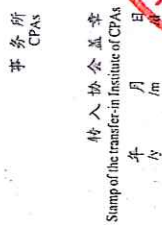 事务所
CPAs
转入协会盖章
Stamp of the transfer-in Institute of CPAs
年 月 日
/y /m